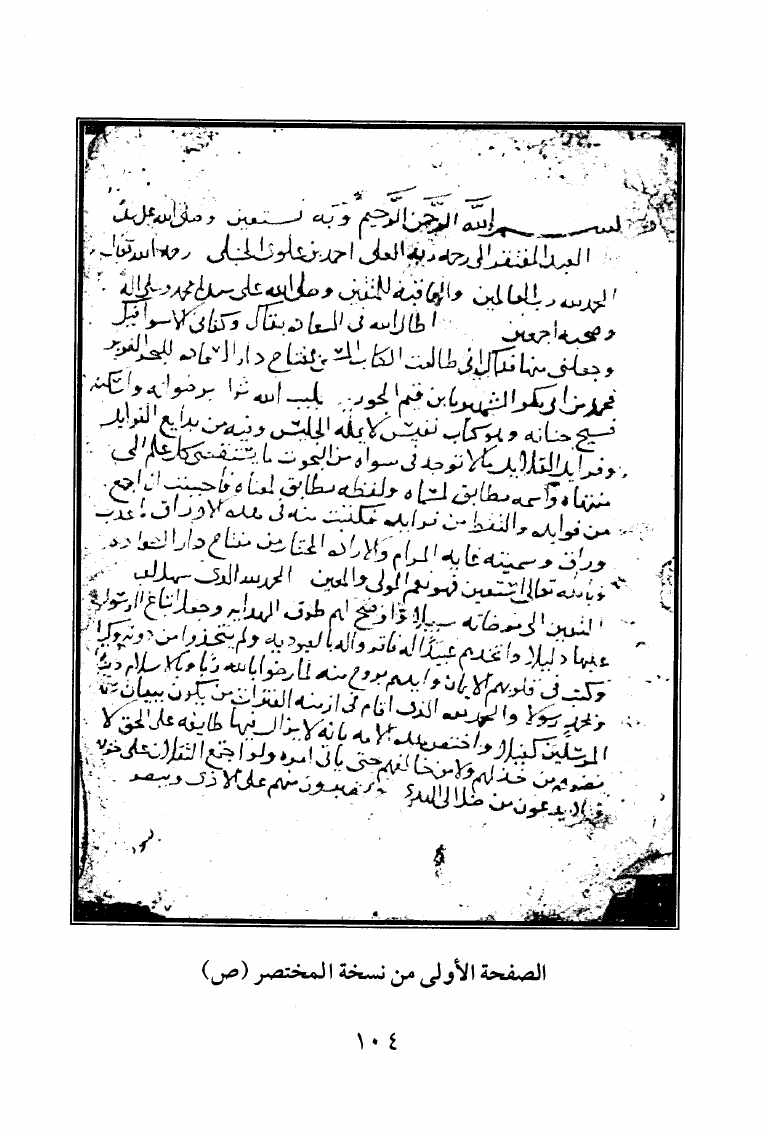 بسم الله الرحمن الرحيم وبه نستعين وصلى الله على
العبد المفتقر الى رحمة ربه العلى احمد بن علوى الحنبلى رحمه الله تعالى
الحمد لله رب العالمين والعاقبة للمتقين وصلى الله على سيدنا محمد وعلى اله
وصحبه اجمعين اطال الله فى السعادة بقاك وكفانى الاسوا فيك
وجعلنى منها فداك انى طالعت الكتاب من مفتاح دار السعاده للبحر الغزير
محمد بن ابى بكر الشهير بابن قيم الجوزيه بلّ الله ثراه برضوانه واسكنه
فسيح جنانه وهو كتاب نفيس لا يمله الجليس وفيه من بدايع الفوايد
وفرايد القلايد ما لا توجد فى سواه من البحوث ما يستقصى كل علم الى
منتهاه واسمه مطابق لمسماه ولفظه مطابق لمعناه فاحببت ان اجمع
من فوايده والتقط من فرايده فكتبت منه فى هذه الاوراق ما عذب
وراق وسميته غايه المرام والاراده المختار من مفتاح دار السعاده
وبالله تعالى استعين فهو نعم المولى والمعين الحمد لله الذى سهل
المتقين الى مرضاته سبيلا واوضح لهم طرق الهدايه وجعل اتباع الرسول
عليها دليلا واتخذهم عبيدا له فاقروا له بالعبوديه ولم يتخذوا من دونه وكيلا
وكتب فى قلوبهم الايمان وايدهم بروح منه لما رضوا بالله ربا وبالاسلام دينا
وبمحمد رسولا والحمد لله الذى اقام فى ازمنه الفترات من يكون ببيان
المرسلين كفيلا واختص هذه الامه بانه لا يزال فيها طايفه على الحق لا
يضرهم من خذلهم ولا من خالفهم حتى ياتى امره ولو اجتمع الثقلان على
يدعون من ضل الى الهدى ويصبرون منهم على الاذى ويبصرون
الصفحة الأولى من نسخة المختصر (ص)
١٠٤